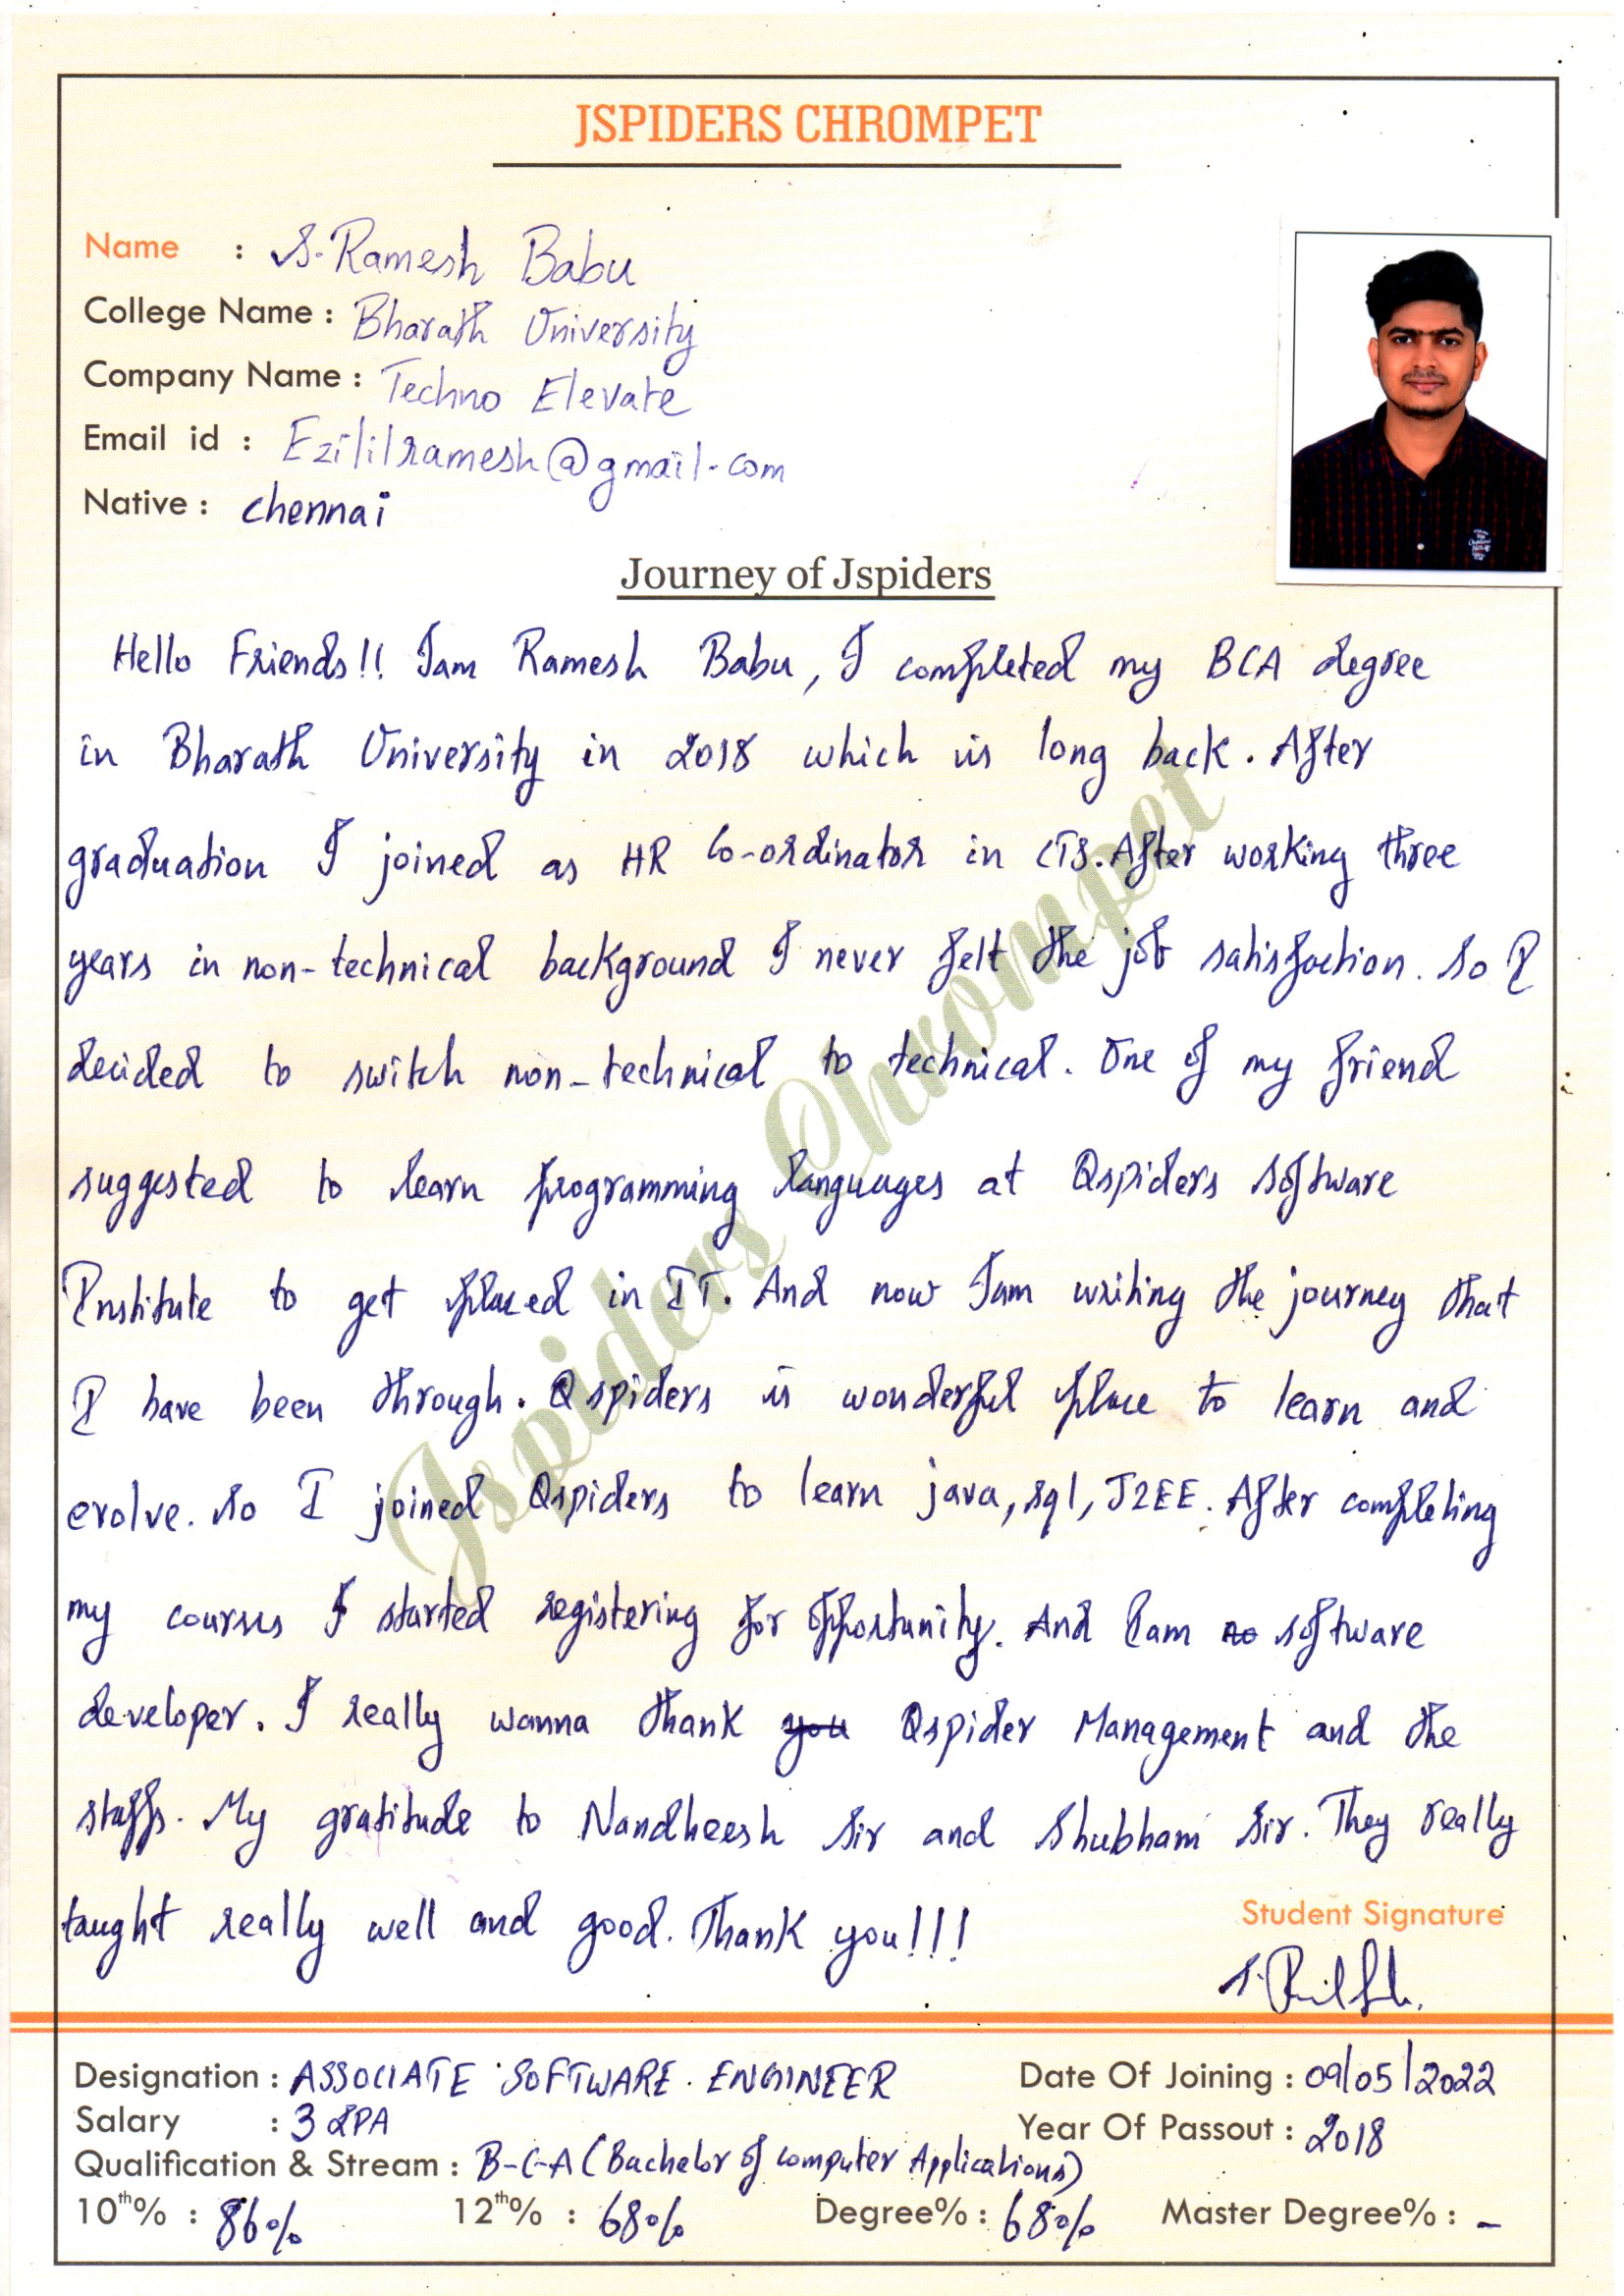 JSPIDERS CHROMPET
Name : S. Ramesh Babu
College Name : Bharath University
Company Name : Techno Elevate
Email id : Ezililramesh@gmail.com
Native : chennai
Journey of Jspiders
Hello Friends!! Iam Ramesh Babu, I completed my BCA degree
in Bharath University in 2018 which is long back. After
graduation I joined as HR Co-ordinator in CTS. After working three
years in non-technical background I never felt the job satisfaction. So I
decided to switch non-technical to technical. One of my friend
suggested to learn programming languages at Qspiders software
Institute to get placed in IT. And now Iam writing the journey that
I have been through. Qspiders is wonderful place to learn and
evolve. So I joined Qspiders to learn java, sql, J2EE. After completing
my courses I started registering for opportunity. And Iam software
developer. I really wanna thank you Qspider Management and the
staffs. My gratitude to Nandheesh Sir and Shubham Sir. They really
taught really well and good. Thank you!!!
Jspiders Chrompet
Student Signature
Designation : ASSOCIATE SOFTWARE ENGINEER
Date Of Joining : 09/05/2022
Salary : 3 LPA
Year Of Passout : 2018
Qualification & Stream : B-C-A (Bachelor of computer Applications)
10th% : 86% 12th% : 68% Degree% : 68% Master Degree% : -